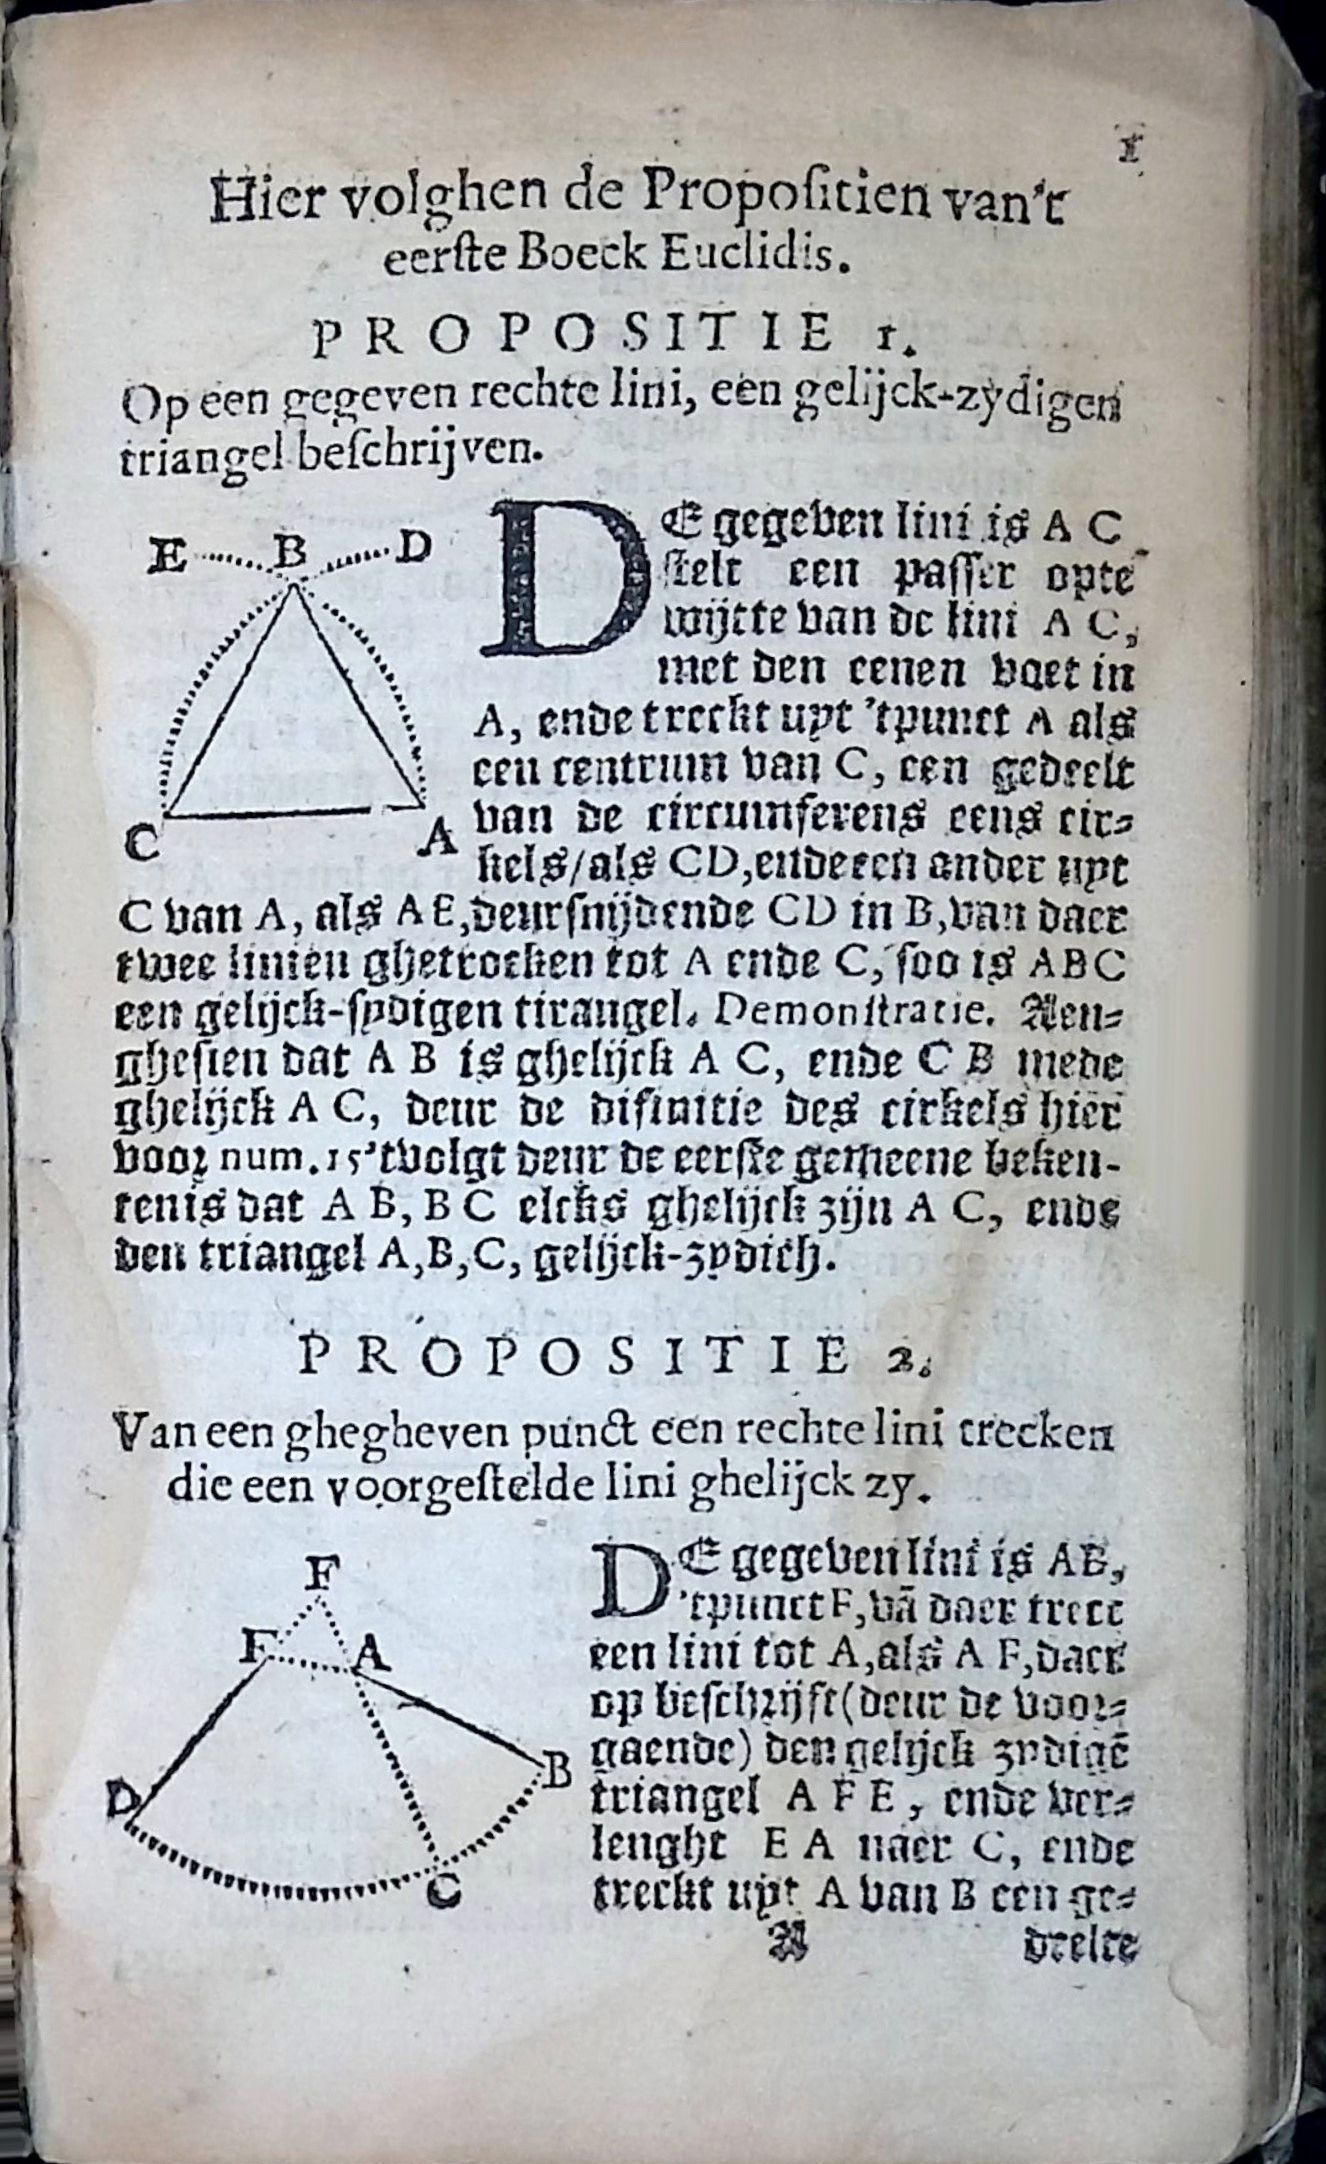 1
Hier volghen de Propositien van't
eerste Boeck Euclidis.
PROPOSITIE 1.
Op een gegeven rechte lini, een gelijck-zydigen
triangel beschrijven.
E B D
C A
DE gegeven lini is A C
stelt een passer opte
wijtte van de lini A C,
met den eenen voet in
A, ende treckt uyt 'tpunct A als
een centrum van C, een gedeelt
van de circumferens eens cir-
kels/als CD,ende een ander uyt
C van A, als AE,deursnijdende CD in B,van daer
twee linien ghetrocken tot A ende C, soo is ABC
een gelijck-sydigen tirangel. Demonstratie. Aen-
ghesien dat A B is ghelijck A C, ende C B mede
ghelijck A C, deur de difinitie des cirkels hier
voor num.15'tvolgt deur de eerste gemeene beken-
tenis dat A B, B C elcks ghelijck zijn A C, ende
den triangel A,B,C, gelijck-zydich.
PROPOSITIE 2.
Van een ghegheven punct een rechte lini trecken
die een voorgestelde lini ghelijck zy.
F
F A
D B
C
DE gegeven lini is AB,
'tpunct F,vā daer trect
een lini tot A,als A F,daer
op beschrijft(deur de voor-
gaende) den gelijck zydigē
triangel A F E, ende ver-
lenght E A naer C, ende
treckt uyt A van B een ge-
A deelte